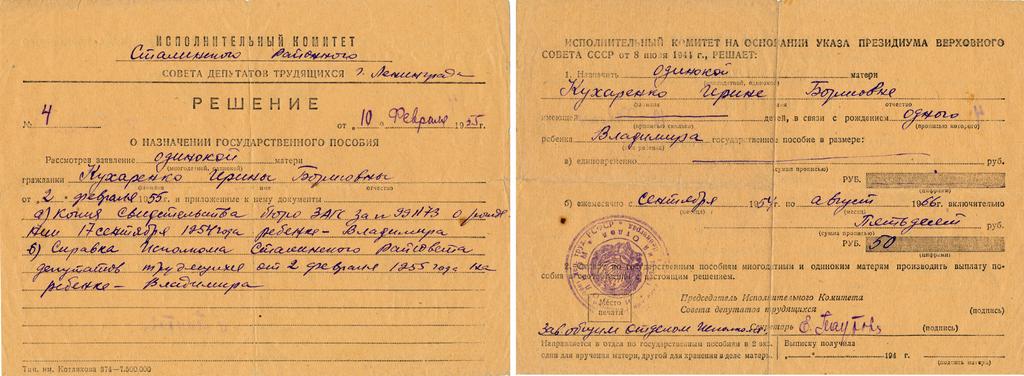 ИСПОЛНИТЕЛЬНЫЙ КОМИТЕТ
Сталинского Районного
СОВЕТА ДЕПУТАТОВ ТРУДЯЩИХСЯ г. Ленинграда
РЕШЕНИЕ
№ 4 от "10" Февраля 1955 г.
О НАЗНАЧЕНИИ ГОСУДАРСТВЕННОГО ПОСОБИЯ
Рассмотрев заявление одинокой матери
(многодетной, одинокой)
гражданки Кухаренко Ирины Борисовны
фамилия имя отчество
от 2 февраля 1955 г. и приложенные к нему документы
а) Копия Свидетельства бюро ЗАГС за № 99473 о рожде
нии 17 сентября 1954 года ребенке - Владимира
б) Справка Исполкома Сталинского Райсовета
депутатов трудящихся от 2 февраля 1955 года на
ребенка - Владимира
Тип. им. Котлякова 374—7.500.000
ИСПОЛНИТЕЛЬНЫЙ КОМИТЕТ НА ОСНОВАНИИ УКАЗА ПРЕЗИДИУМА ВЕРХОВНОГО
СОВЕТА СССР от 8 июля 1944 г., РЕШАЕТ:
1. Назначить одинокой матери
(многодетной, одинокой)
Кухаренко Ирине Борисовне
фамилия имя отчество
имеющей детей, в связи с рождением одного
(прописью сколько) (прописью которого)
ребенка Владимира государственное пособие в размере:
(имя ребенка)
а) единовременно руб.
(сумма прописью)
РУБ.
(цифрами)
б) ежемесячно с сентября 1954 г. по август 1966 г. включительно
(месяц) (месяц)
Пятьдесят руб.
(сумма прописью)
РУБ. 50
(цифрами)
2. по государственным пособиям многодетным и одиноким матерям производить выплату посо-
бия настоящим решением.
Место
печати
Председатель Исполнительного Комитета
Совета депутатов трудящихся (подпись)
Зав. общим отделом Исполкома Секретарь (подпись)
Направляется в отдел по государственным пособиям в 2 экз. Выписку получила
один для вручения матери, другой для хранения в деле матери. " " 194 г.
(подпись матери)